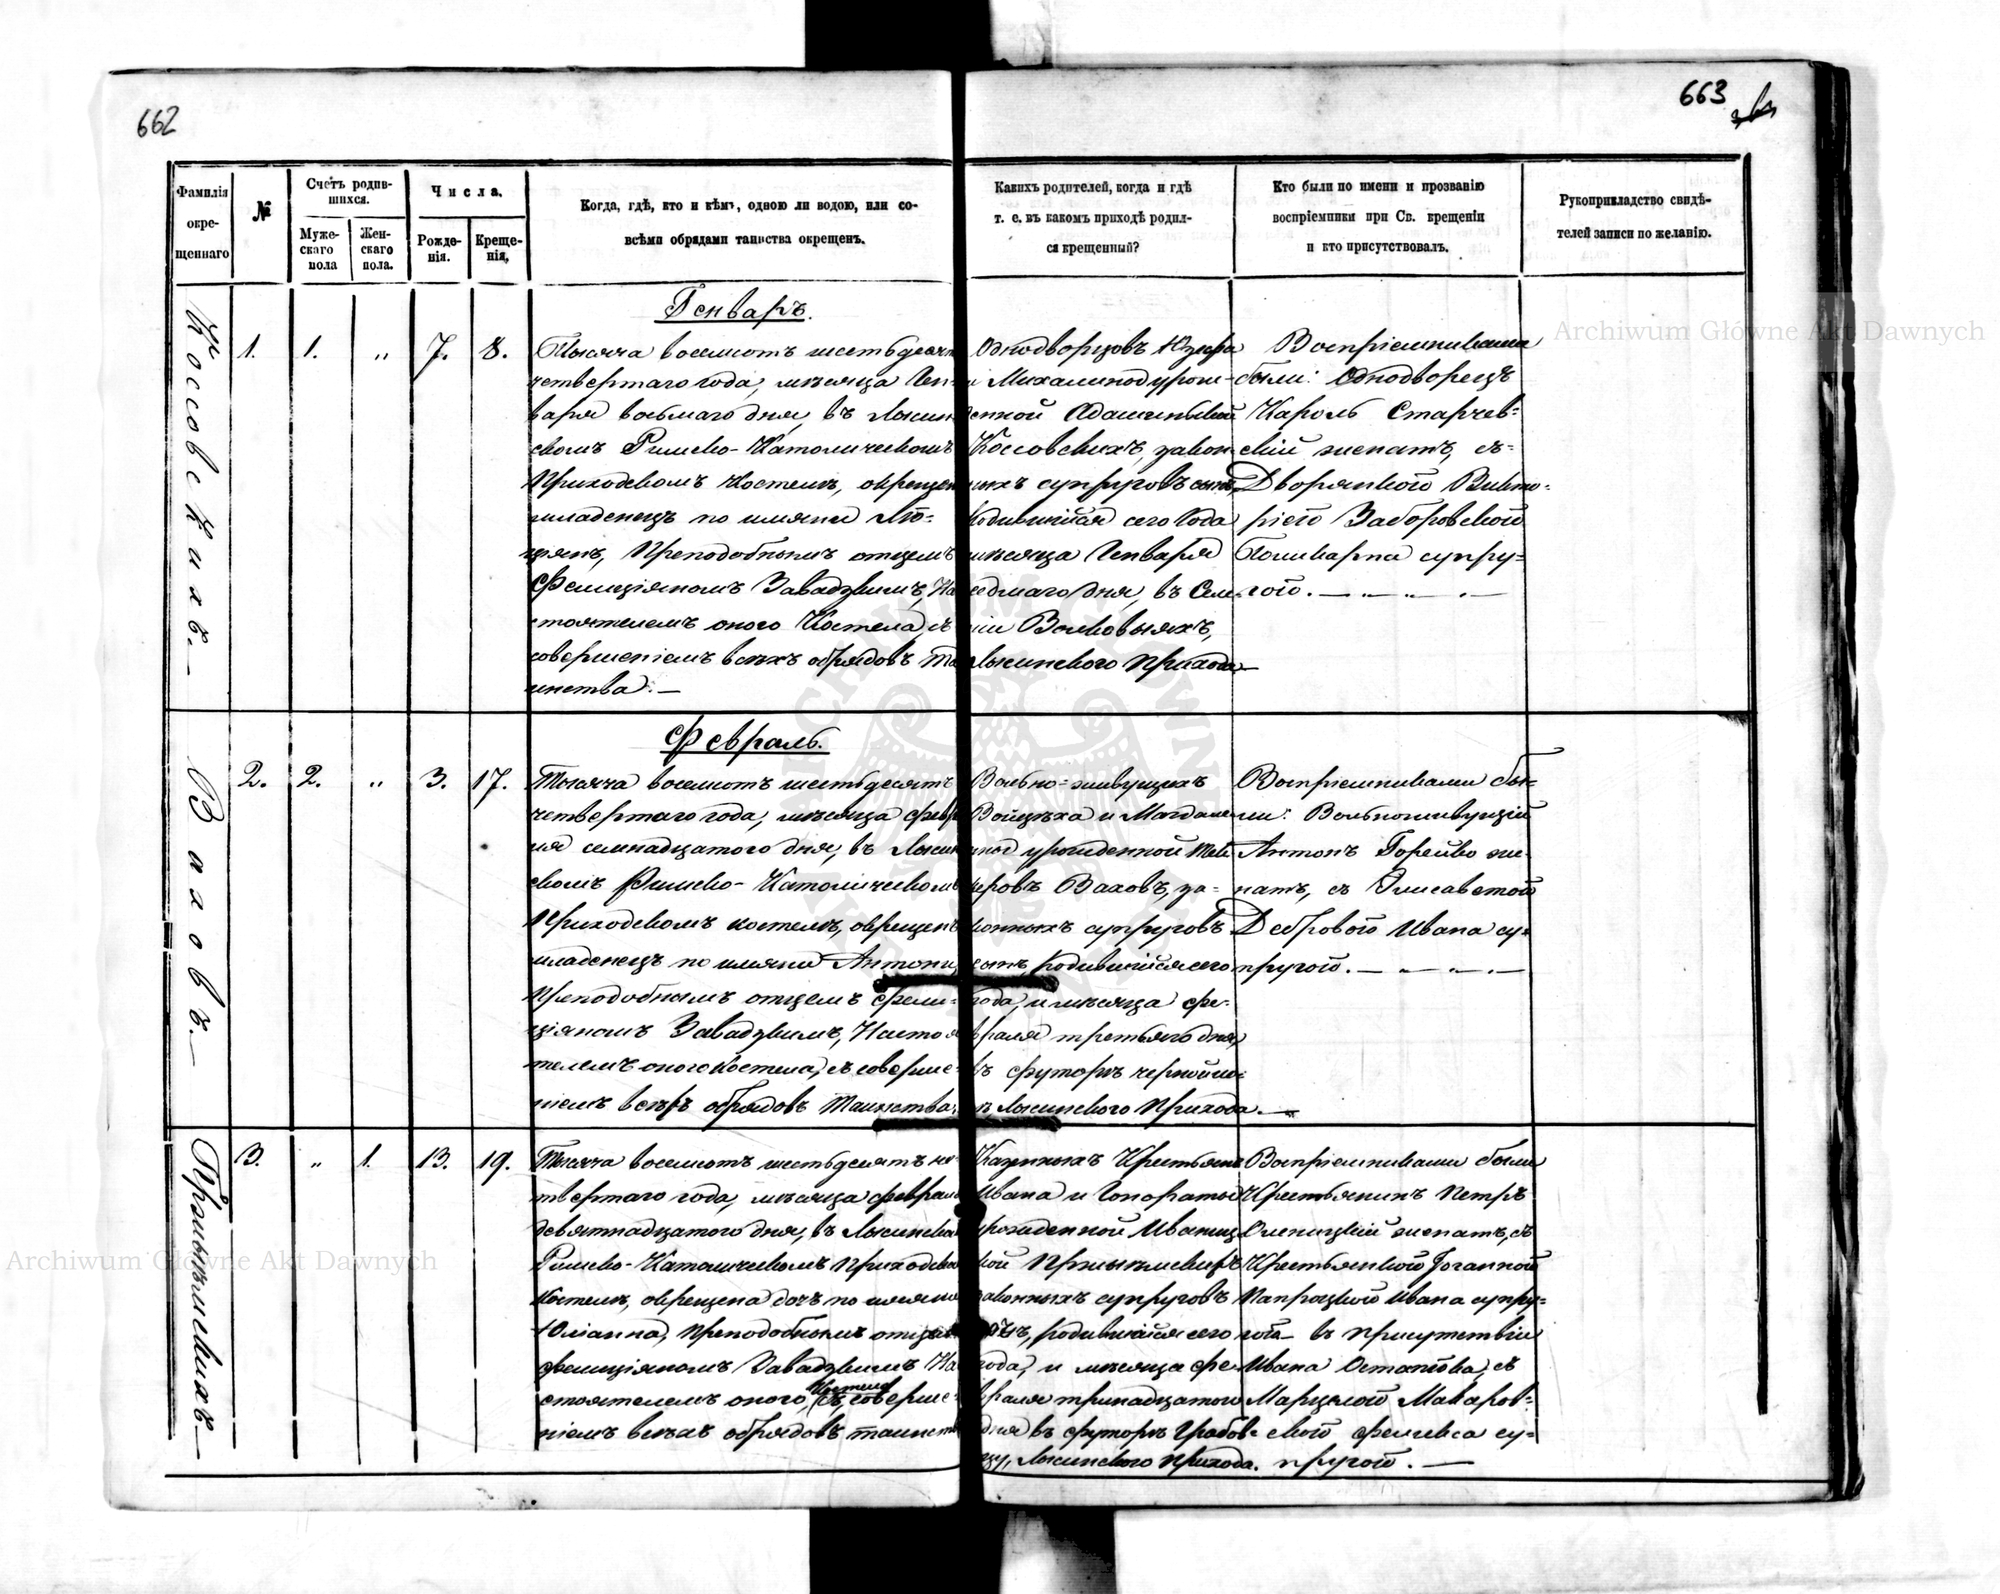 662
663
Фамилія
окре-
щеннаго
№
Счетъ родив-
шихся.
Муже-
скаго
пола
Жен-
скаго
пола.
Числа.
Рожде-
нія.
Креще-
нія,
Когда, гдѣ, кто и кѣмъ, одною ли водою, или со-
всѣми обрядами таинства окрещенъ.
Какихъ родителей, когда и гдѣ
т. е. въ какомъ приходѣ родил-
ся крещенный?
Кто были по имени и прозванію
воспріемники при Св. крещеніи
и кто присутствовалъ.
Рукоприкладство свидѣ-
телей записи по желанію.
Коссовскихъ.—
1.
1.
„
7.
8.
Генваръ.
Тысяча восемсотъ шестьдесятъ
четвертаго года, мѣсяца Ген-
варя восьмаго дня, въ
скомъ Римско-Католическомъ
Приходскомъ Костелѣ, окрещен
младенецъ по имяни Лю-
ціянъ, Преподобнымъ отцемъ
Фелиціяномъ Завадзкимъ, На
стоятелемъ оного Костела, съ
совершеніемъ всѣхъ обрядовъ та
инства.—
Однодворцовъ Юзефа
и Михалины урож-
денной
Коссовскихъ, закон
ныхъ супруговъ сынъ,
родившійся сего Года
мѣсяца Генваря
седмаго дня, въ Селе
ніи Волковыяхъ,
Прихода—
Воспріемниками
были: Однодворецъ
Кароль Старчев-
скій женатъ, съ-
Дворянкою Викто-
ріею Заборовскою
Поликарпа супру-
гою.—
Ваховъ.—
2.
2.
„
3.
17.
Февраль.
Тысяча восемсотъ шестьдесятъ
четвертаго года, мѣсяца Февра
ля семнадцатого дня, въ
скомъ Римско-Католическомъ
Приходскомъ костелѣ, окрещенъ
младенецъ по имяни Антони,
Преподобнымъ отцемъ Фели-
ціяномъ Завадзкимъ, Настоя
телемъ оного костела, съ соверше-
ніемъ всѣхъ обрядовъ Таинства.
Вольно-живущихъ
Войцѣха и Магдале
ны урожденной
Ваховъ, за-
конныхъ супруговъ
сынъ, родившійся сего
года, и мѣсяца Фе-
враля третьяго дня,
въ футорѣ
Прихода.—
Воспріемниками бы-
ли: Вольноживущій
Антонъ же-
натъ, съ Элисаветой
Ивана су-
пругой.—
3.
„
1.
13.
19.
Тысяча восемсотъ шестьдесятъ че-
твертаго года, мѣсяца Февраля
девятнадцатого дня, въ
Римско-Католическомъ Приходском
Костелѣ, окрещена дочь по имяни
Юліанна, Преподобнымъ отцемъ
Фелиціяномъ Завадзкимъ На
стоятелемъ оного Костела, съ соверше-
ніемъ всѣхъ обрядовъ таинств
Казенныхъ Крестьянъ
Ивана и Гонораты
урожденной
законныхъ супруговъ
дочь, родившійся сего
года, и мѣсяца Фе
враля тринадцатого
дня въ футорѣ Грабов-
цу, Прихода.
Воспріемниками были
Крестьянинъ Петръ
женатъ, съ
Крестьянкой Іоганной
Ивана супру-
гой— въ присутствіи
Ивана съ
Марцелой Макаров-
ского Феликса су-
пругой.—
Archiwum Główne Akt Dawnych
Archiwum Główne Akt Dawnych